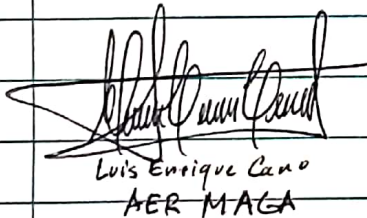 Luis Enrique Cano
AER MAGA